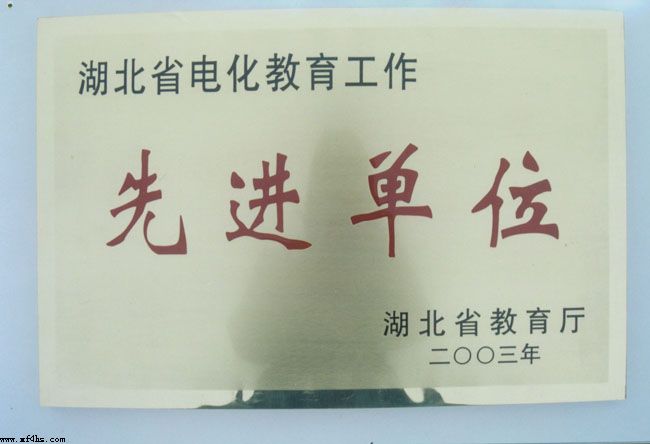 湖北省电化教育工作
先进单位
湖北省教育厅
二〇〇三年
www.xf4hs.com